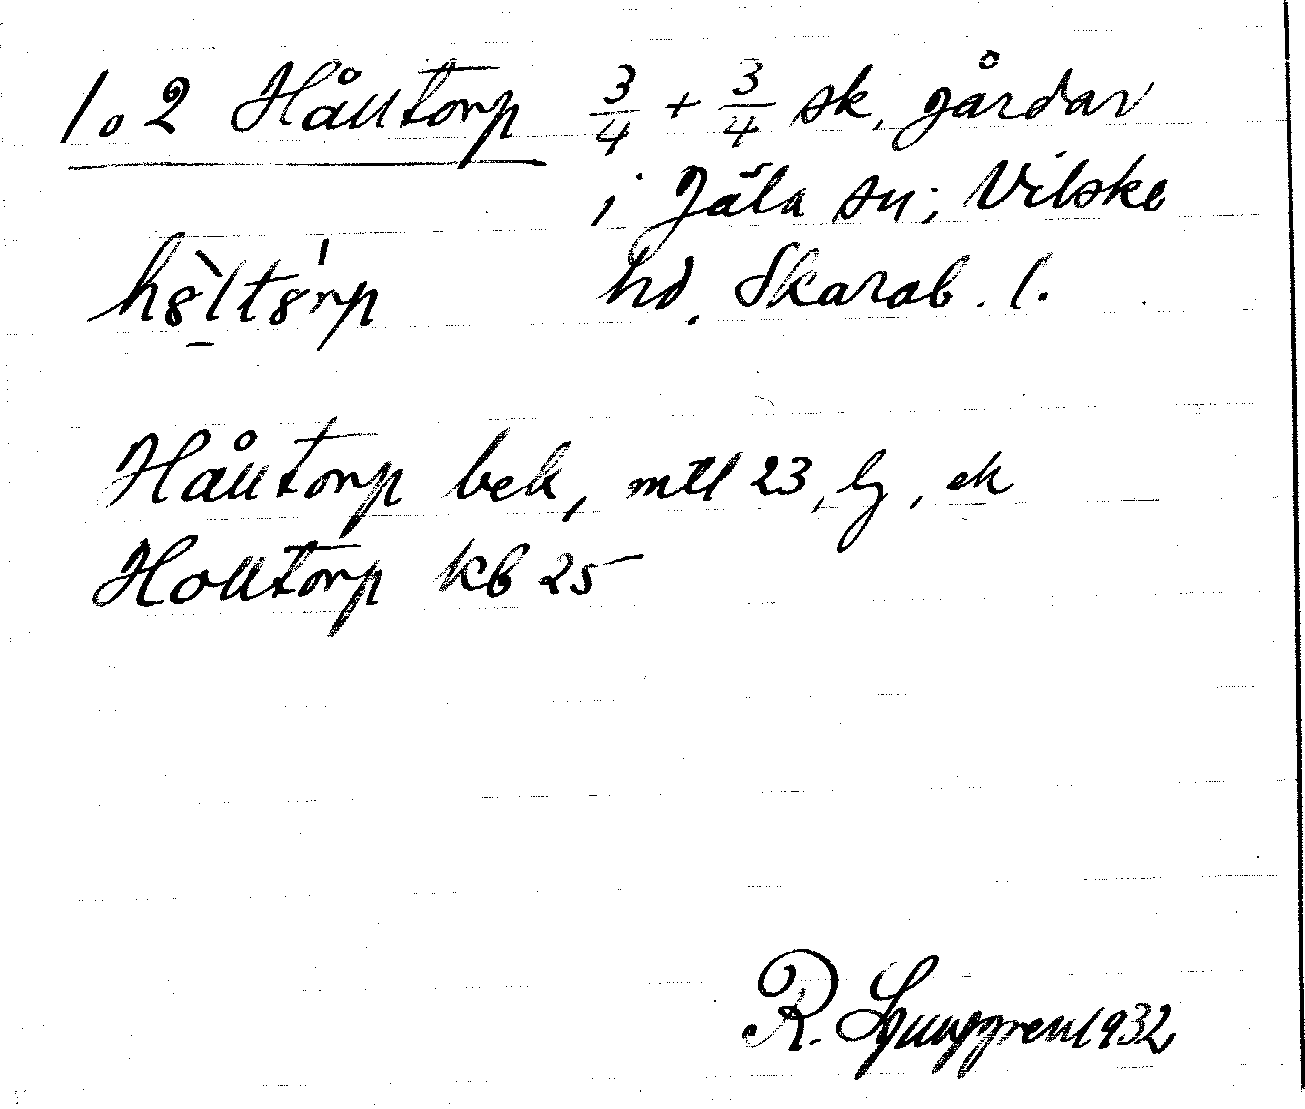 1 o 2 Hålltorp 3/4 + 3/4 sk. gårdar
i Jäla sn; Vilske
hd. Skarab. l.
Hålltorp bek, mtl 23, lj, ek
Holltorp kb 25
R. Ljunggren 1932